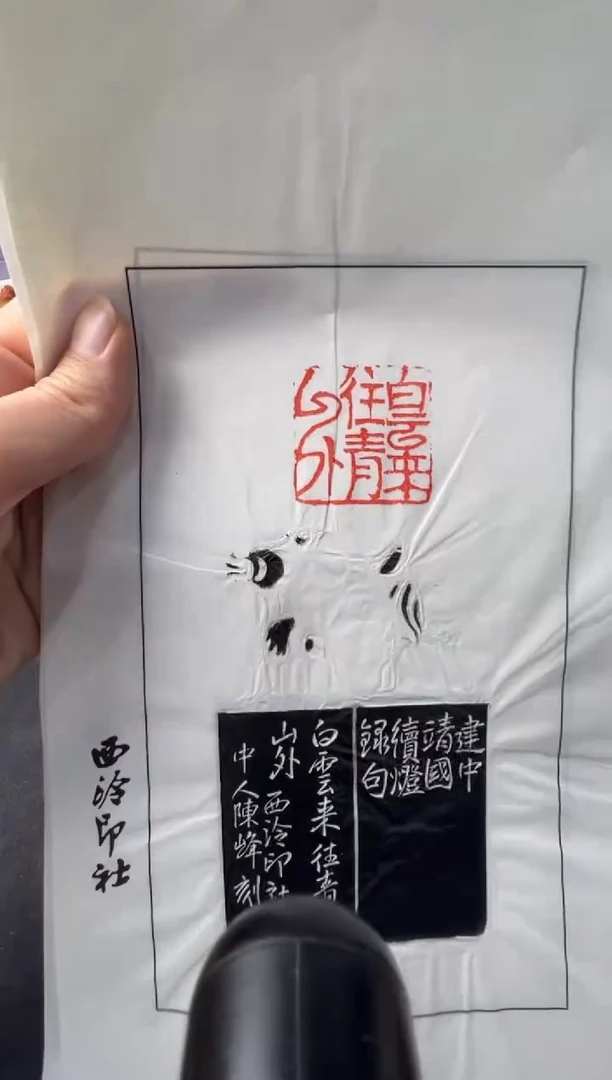 白云来
往青
山外
建中
靖國
續燈
録句
白雲来往青
山外 西泠印社
中人陳峰刻
西泠印社